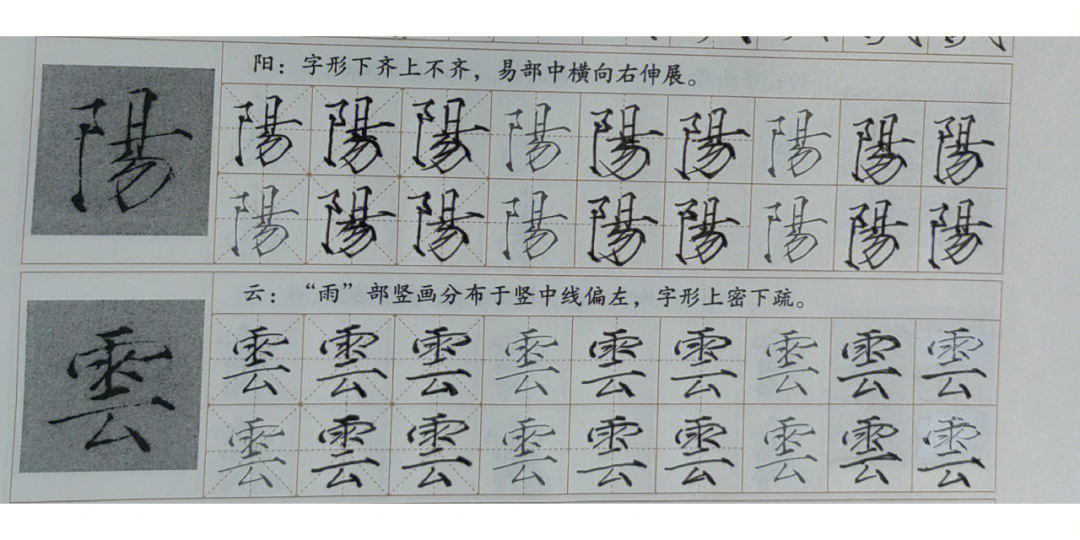 阳：字形下齐上不齐，易部中横向右伸展。
陽
陽陽陽陽陽陽陽陽陽
陽陽陽陽陽陽陽陽陽
云：“雨”部竖画分布于竖中线偏左，字形上密下疏。
雲
雲雲雲雲雲雲雲雲雲
雲雲雲雲雲雲雲雲雲